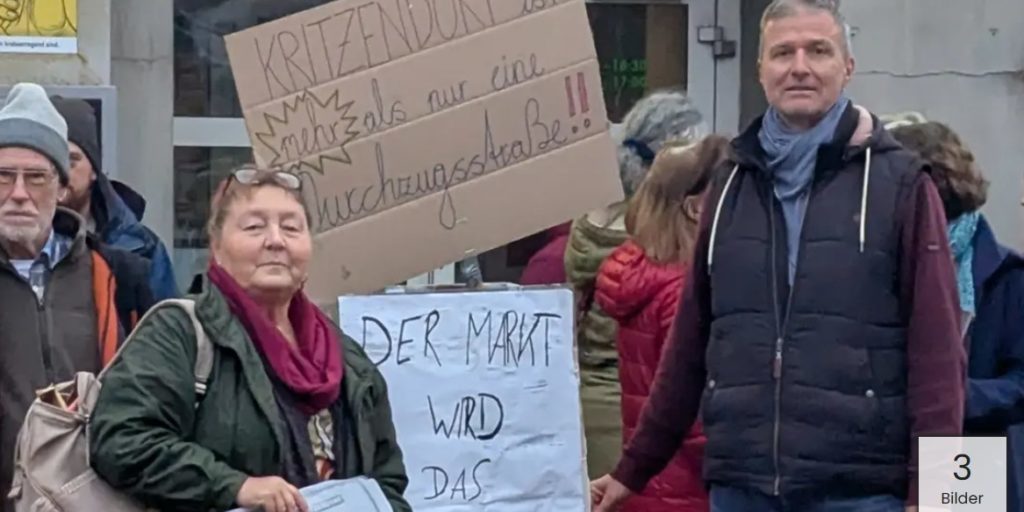 KRITZENDORF ist
mehr als nur eine
Durchzugsstraße!!
DER MARKT
WIRD
DAS
16:30
17:00
3
Bilder